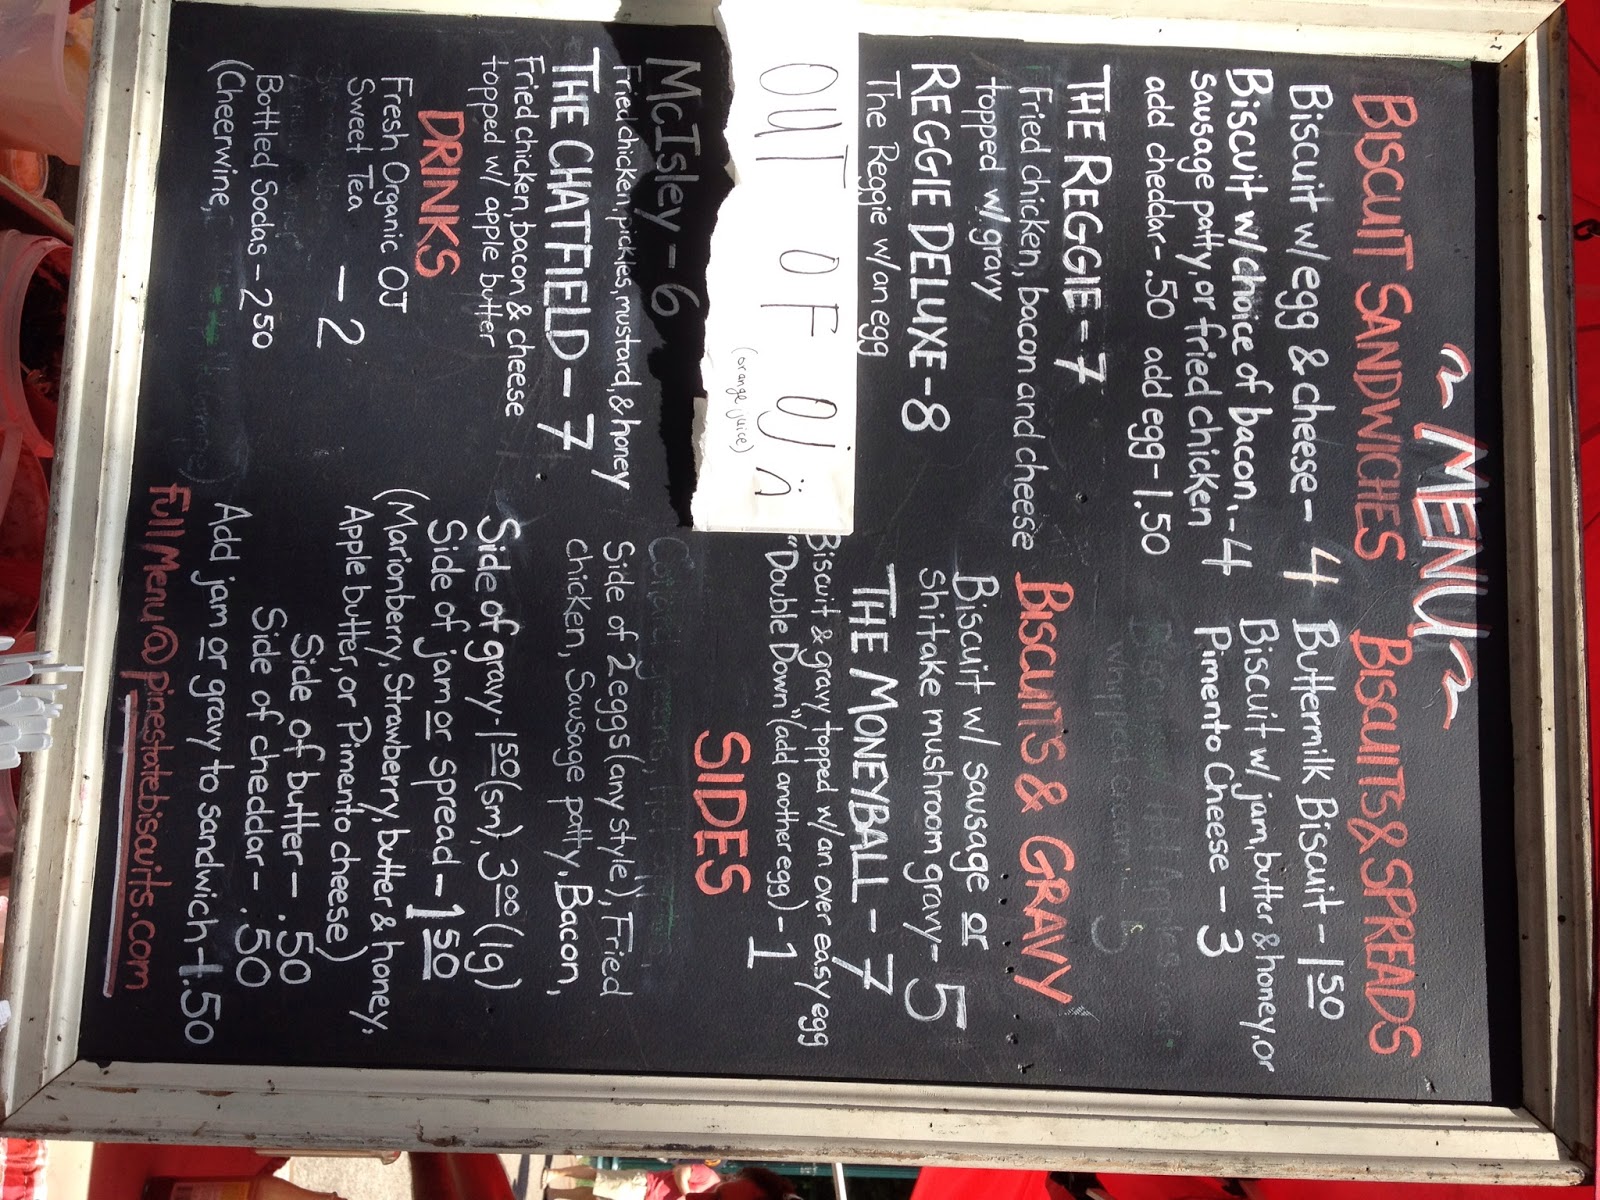 ~MENU~
BISCUIT SANDWICHES
Biscuit w/egg & cheese - 4
Biscuit w/choice of bacon, - 4
sausage patty, or fried chicken
add cheddar - .50 add egg - 1.50
THE REGGIE - 7
Fried chicken, bacon and cheese
topped w/ gravy
REGGIE DELUXE - 8
The Reggie w/an egg
OUT OF OJ :(
(orange juice)
McIsley - 6
Fried chicken, pickles, mustard, & honey
THE CHATFIELD - 7
Fried chicken, bacon & cheese
topped w/ apple butter
DRINKS
Fresh Organic OJ
Sweet Tea - 2
Bottled Sodas - 2 50
(Cheerwine,
BISCUITS & SPREADS
Buttermilk Biscuit - 1 50
Biscuit w/jam, butter & honey, or
Pimento Cheese - 3
whipped cream 5
BISCUITS & GRAVY
Biscuit w/ sausage or
shitake mushroom gravy - 5
THE MONEYBALL - 7
Biscuit & gravy, topped w/an over easy egg
"Double Down" (add another egg) - 1
SIDES
Side of 2 eggs (any style), Fried
chicken, Sausage patty, Bacon,
Side of gravy - 1 50 (sm), 3 00 (lg)
Side of jam or spread - 1 50
(Marionberry, Strawberry, butter & honey,
Apple butter, or Pimento cheese)
Side of butter - .50
Side of cheddar - .50
Add jam or gravy to sandwich - 1.50
Full Menu @ pinestatebiscuits.com